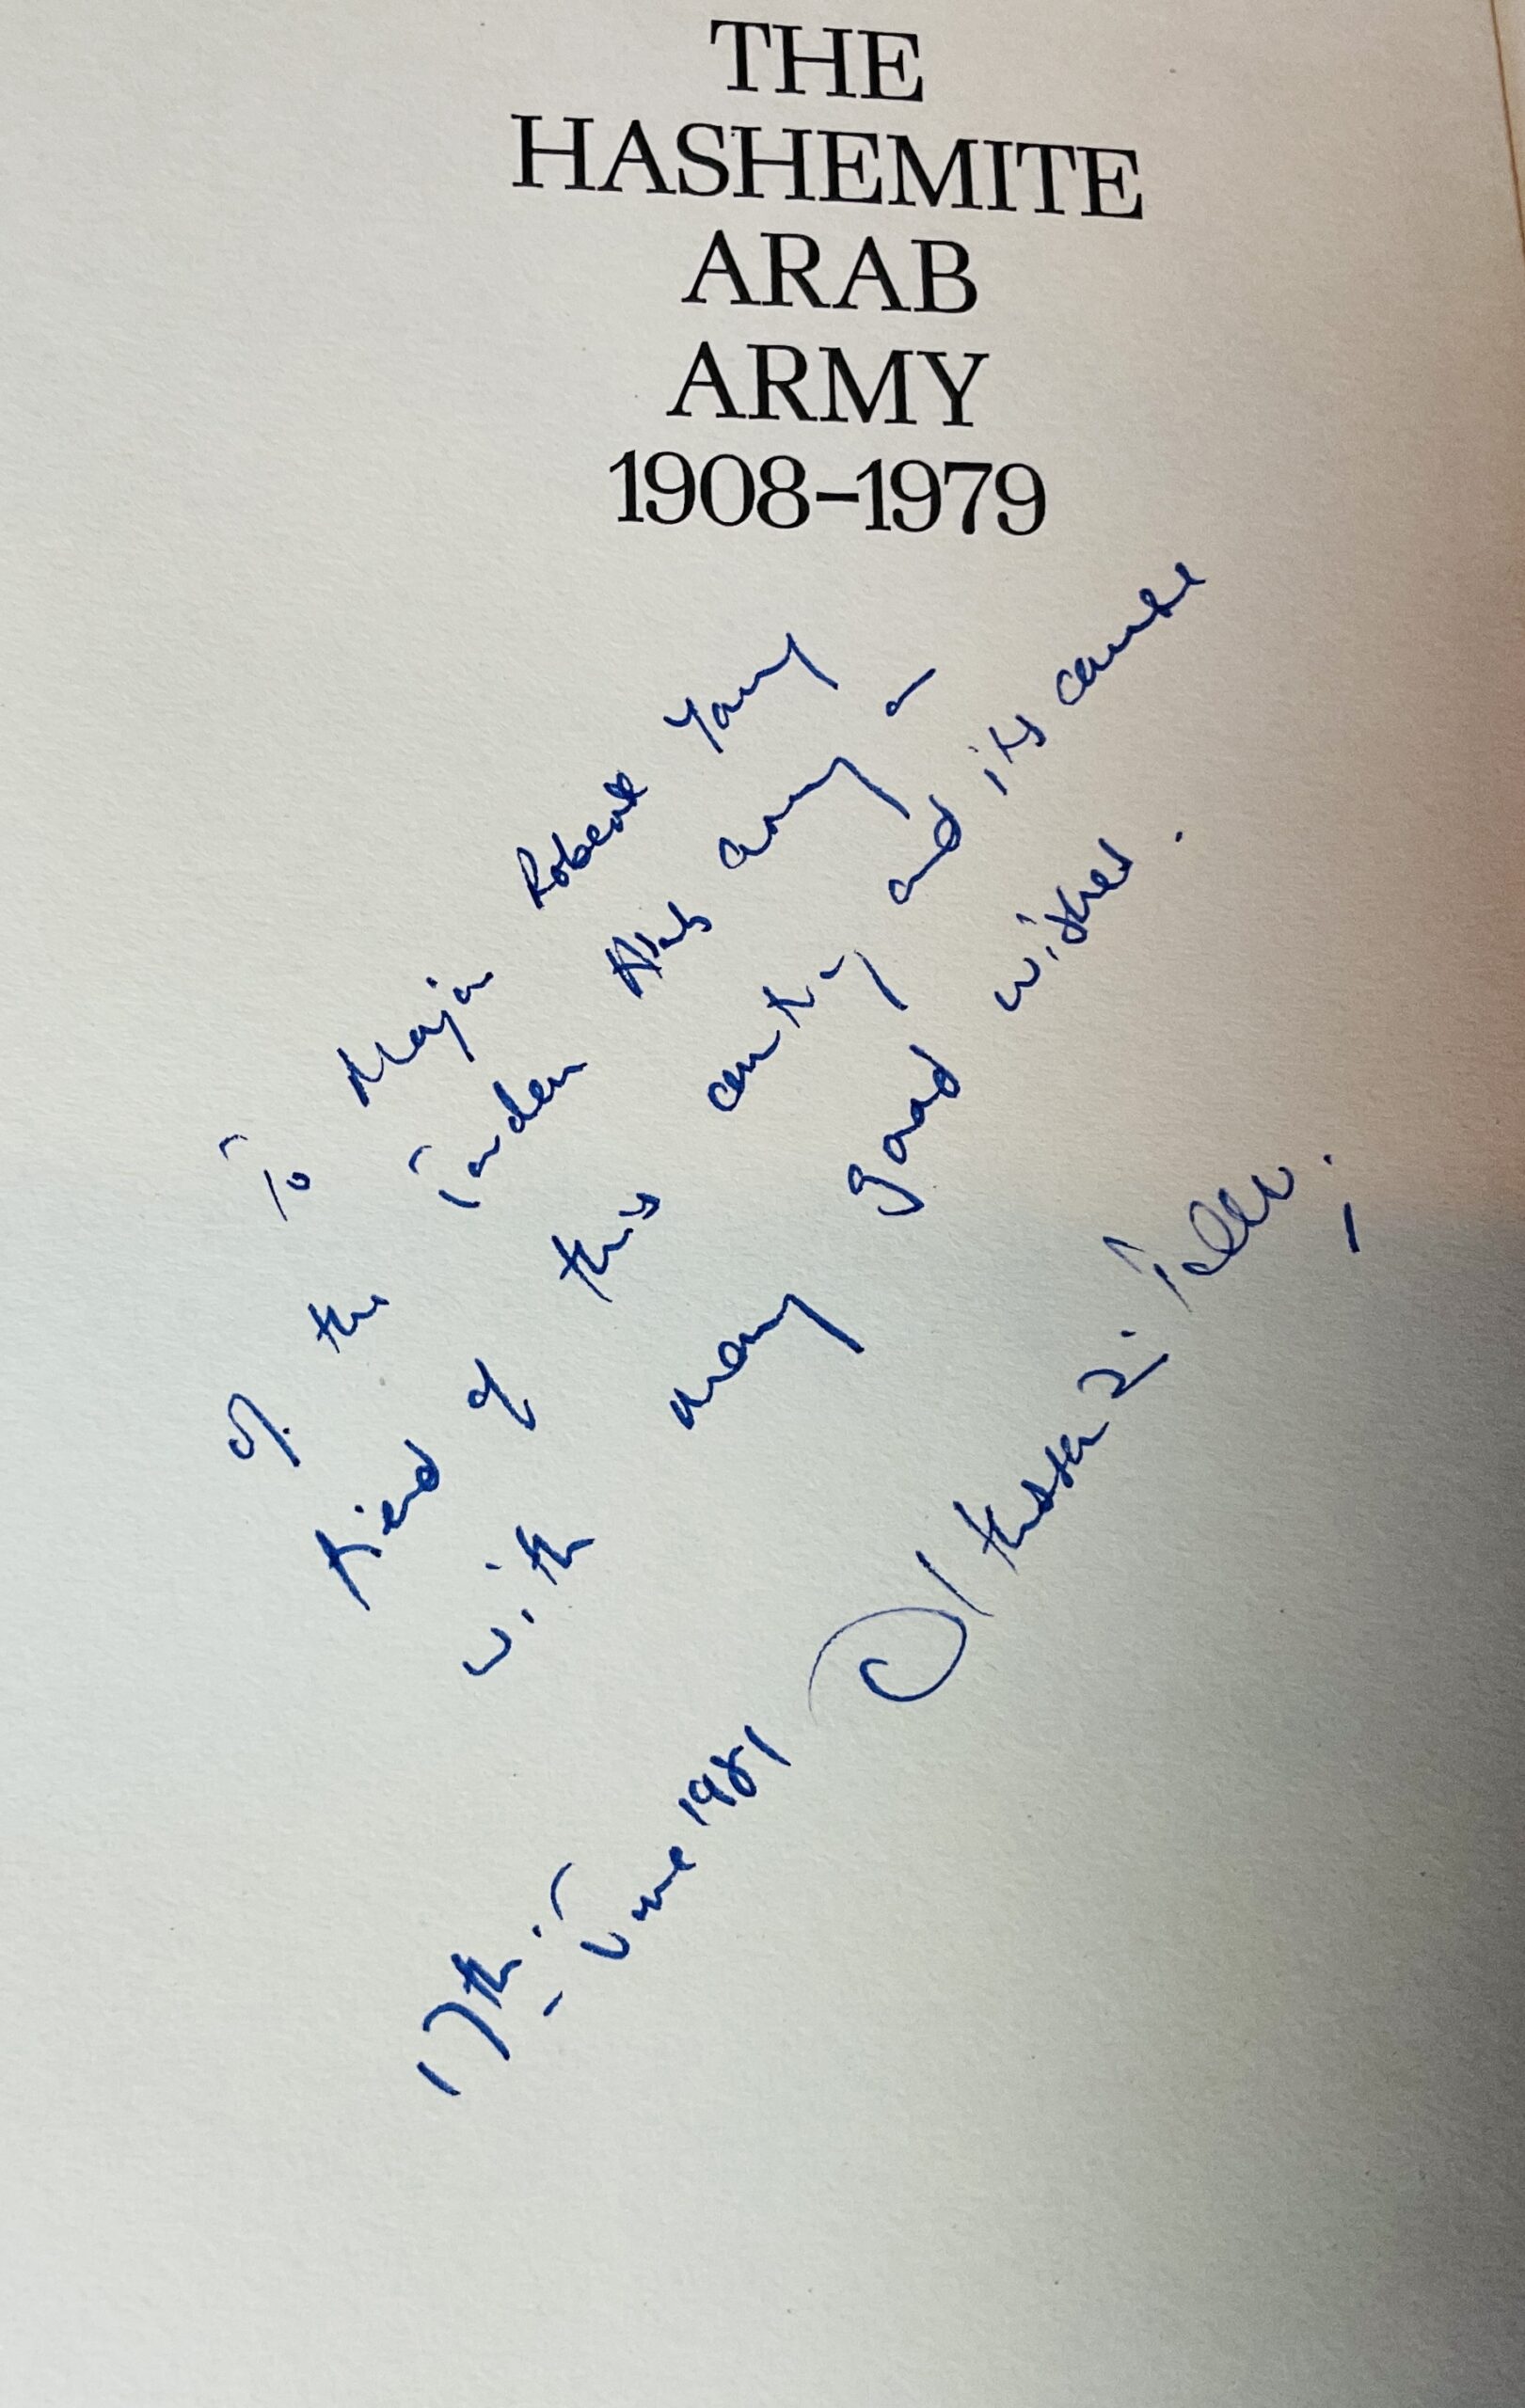 THE
HASHEMITE
ARAB
ARMY
1908–1979
To Major Robert Young
of the Jordan Arab army a
friend of this country and its cause
with many good wishes.
17th. June 1981